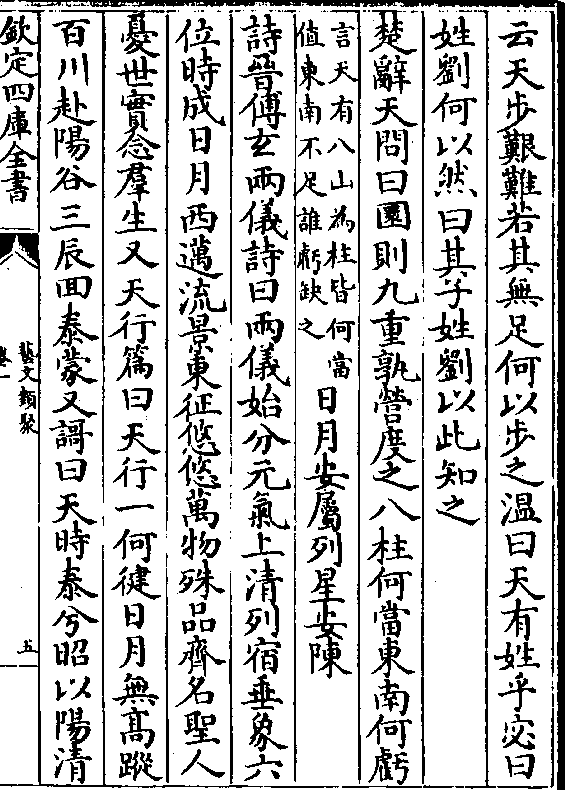 云天步艱難若其無足何以步之溫曰天有姓乎宓曰
姓劉何以然曰其子姓劉以此知之
楚辭天問曰圜則九重孰營度之八柱何當東南何虧
言天有八山為柱皆何當
值東南不足誰虧缺之
日月安屬列星安陳
詩晉傅玄兩儀詩曰兩儀始分元氣上清列宿垂象六
位時成日月西邁流景東征悠悠萬物殊品齊名聖人
憂世實念羣生又天行篇曰天行一何健日月無高蹤
百川赴陽谷三辰回泰蒙又謌曰天時泰兮昭以陽清
欽定四庫全書
藝文類聚
卷一
五